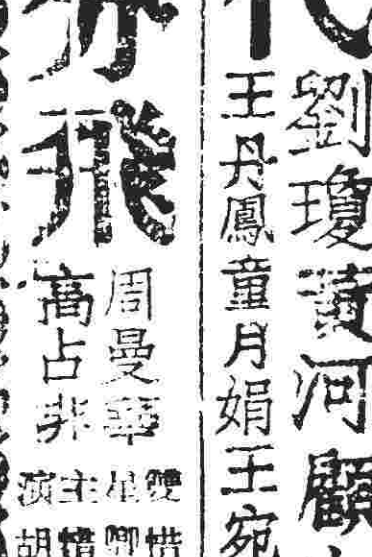 劉瓊黃河顧
王丹鳳童月娟王宛
飛
周曼華
高占非
雙星
主演